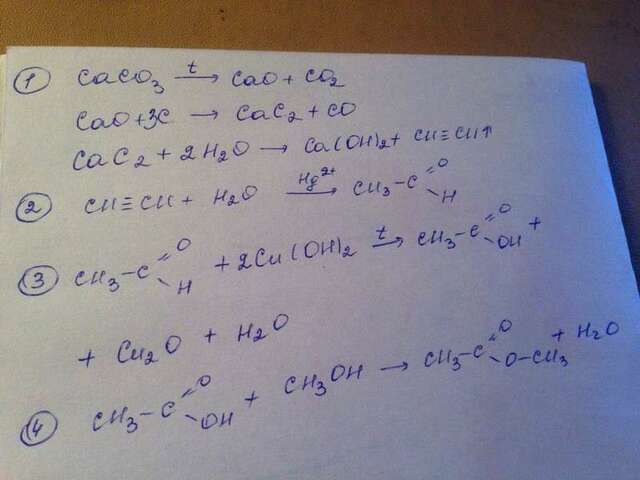 ① CaCO₃ →ᵗ CaO + CO₂
CaO + 3C → CaC₂ + CO
CaC₂ + 2H₂O → Ca(OH)₂ + CH≡CH↑
② CH≡CH + H₂O →(Hg²⁺) CH₃-C(=O)-H
③ CH₃-C(=O)-H + 2Cu(OH)₂ →ᵗ CH₃-C(=O)-OH +
+ Cu₂O + H₂O
④ CH₃-C(=O)-OH + CH₃OH → CH₃-C(=O)-O-CH₃ + H₂O